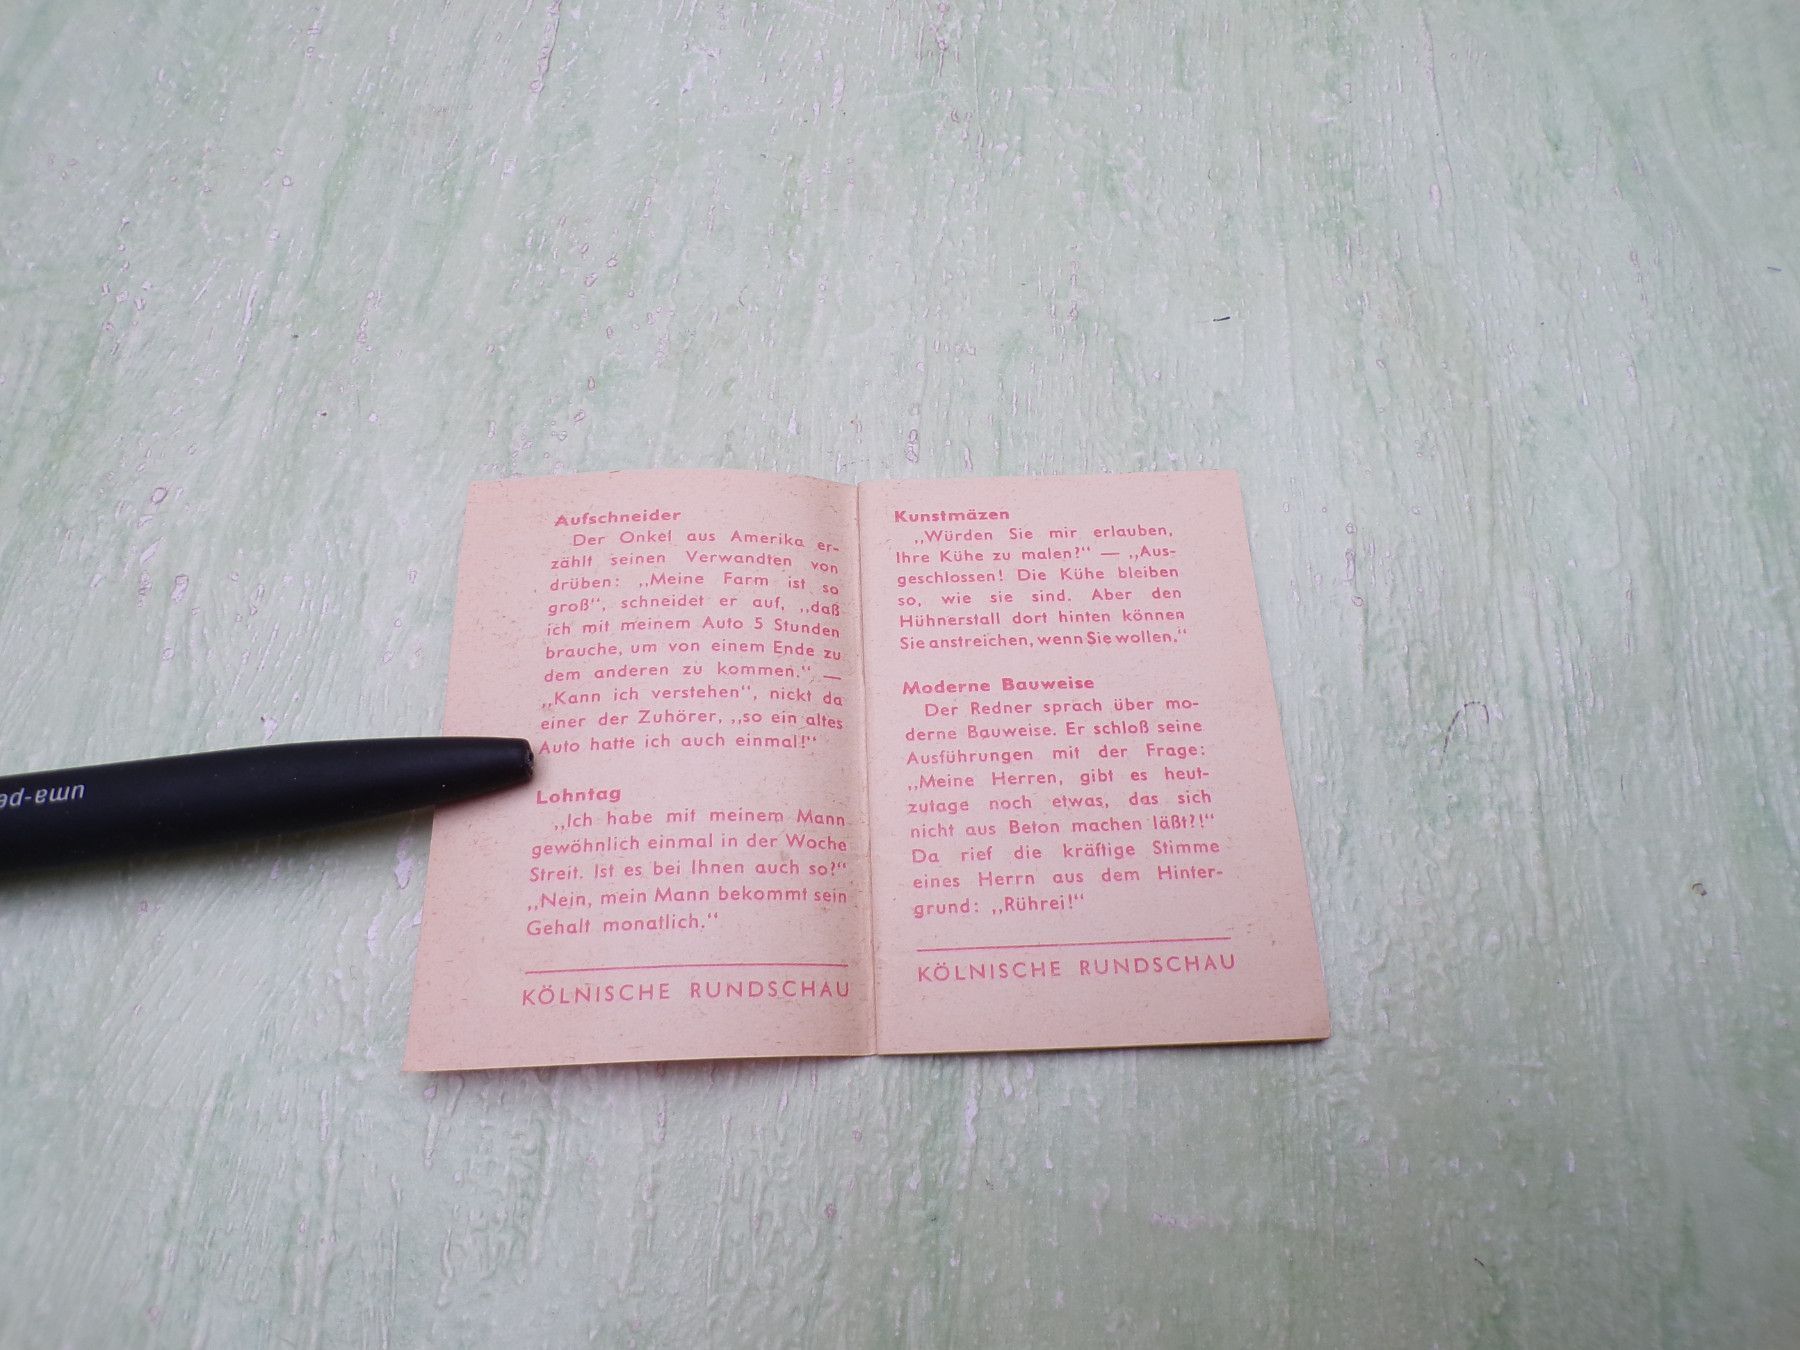 Aufschneider
Der Onkel aus Amerika er-
zählt seinen Verwandten von
drüben: „Meine Farm ist so
groß“, schneidet er auf, „daß
ich mit meinem Auto 5 Stunden
brauche, um von einem Ende zu
dem anderen zu kommen.“ —
„Kann ich verstehen“, nickt da
einer der Zuhörer, „so ein altes
Auto hatte ich auch einmal!“
Lohntag
„Ich habe mit meinem Mann
gewöhnlich einmal in der Woche
Streit. Ist es bei Ihnen auch so?“
„Nein, mein Mann bekommt sein
Gehalt monatlich.“
KÖLNISCHE RUNDSCHAU
Kunstmäzen
„Würden Sie mir erlauben,
Ihre Kühe zu malen?“ — „Aus-
geschlossen! Die Kühe bleiben
so, wie sie sind. Aber den
Hühnerstall dort hinten können
Sie anstreichen, wenn Sie wollen.“
Moderne Bauweise
Der Redner sprach über mo-
derne Bauweise. Er schloß seine
Ausführungen mit der Frage:
„Meine Herren, gibt es heut-
zutage noch etwas, das sich
nicht aus Beton machen läßt?!“
Da rief die kräftige Stimme
eines Herrn aus dem Hinter-
grund: „Rührei!“
KÖLNISCHE RUNDSCHAU
uma-pe